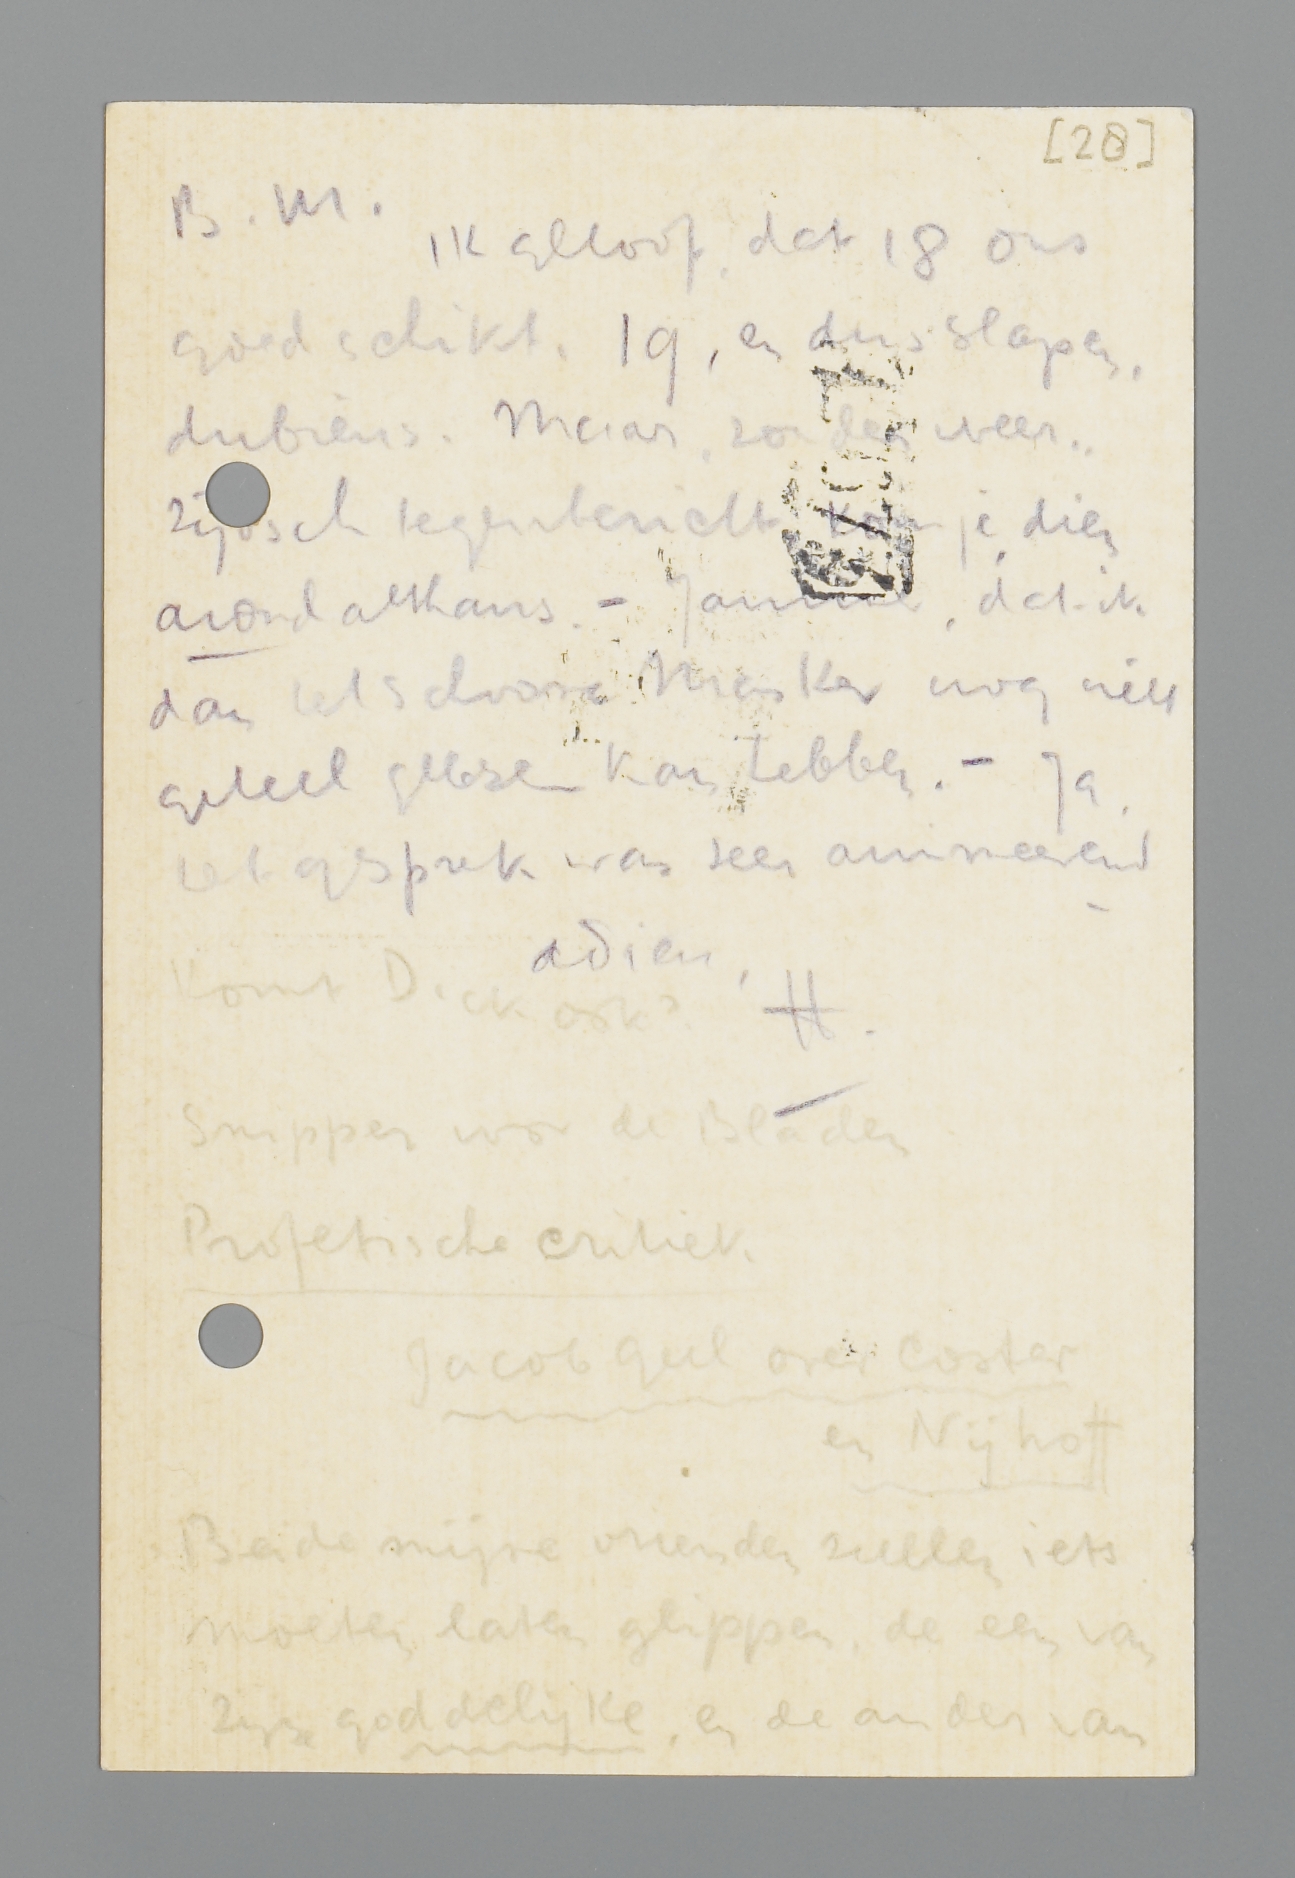 [28]
B. M.
Ik geloof, dat 18 ons
goed schikt. 19, en dus slapen,
dubieus. Maar, zonder weer-
zijdsch tegenbericht kom je dien
avond althans. - Jammer, dat ik
dan het Schoone Masker nog niet
geheel gelezen kan hebben. - Ja,
het gesprek was zeer animeerend
adieu,
H.
Komt Dick ook?
Snippers voor de Bladen
Profetische critiek.
Jacob Geel over Coster
en Nijhoff
Beide mijne vrienden zullen iets
moeten laten glippen, de een van
zijn goddelijke, en de ander van